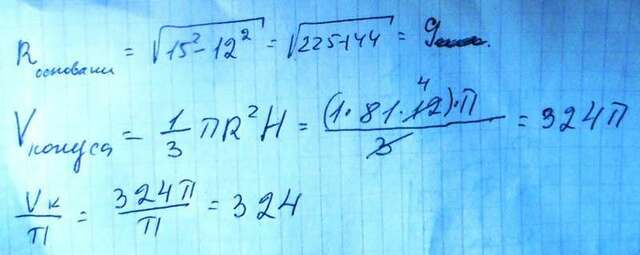 R основани = √(15² - 12²) = √(225-144) = 9
V конуса = 1/3 πR²H = (1·81·12)·π / 3 = 324π
Vк/π = 324π/π = 324